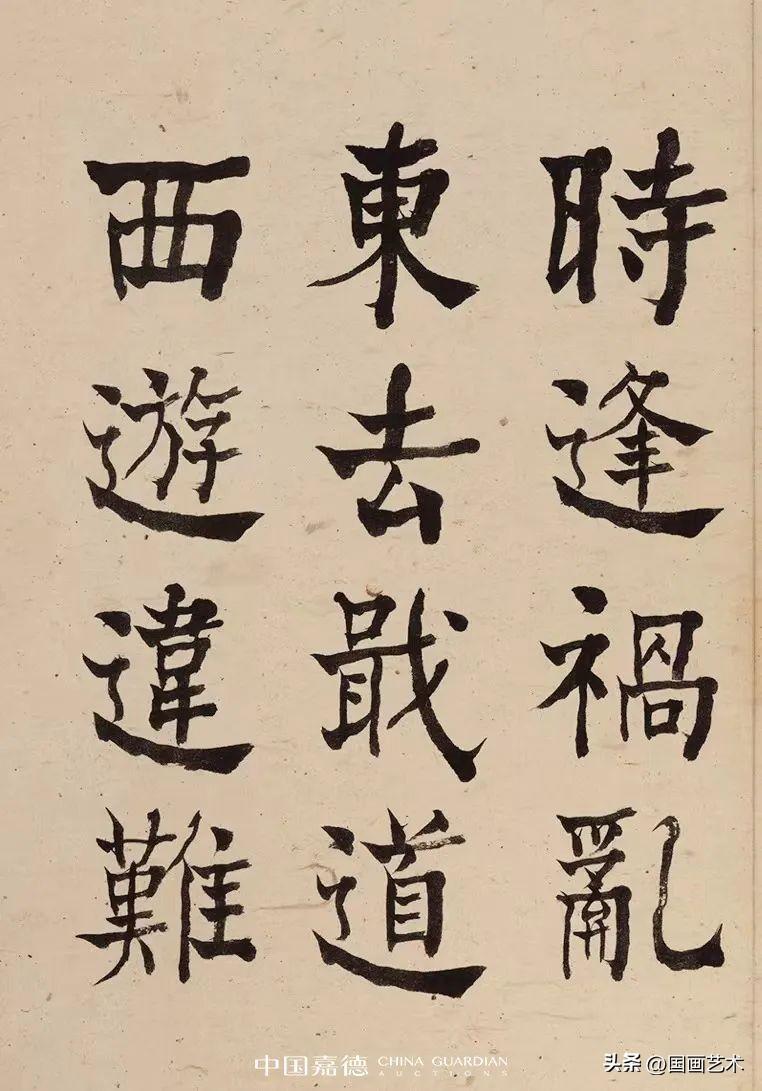 時逢禍亂
東去戢道
西遊違難
中国嘉德 CHINA GUARDIAN
AUCTIONS
头条 @国画艺术